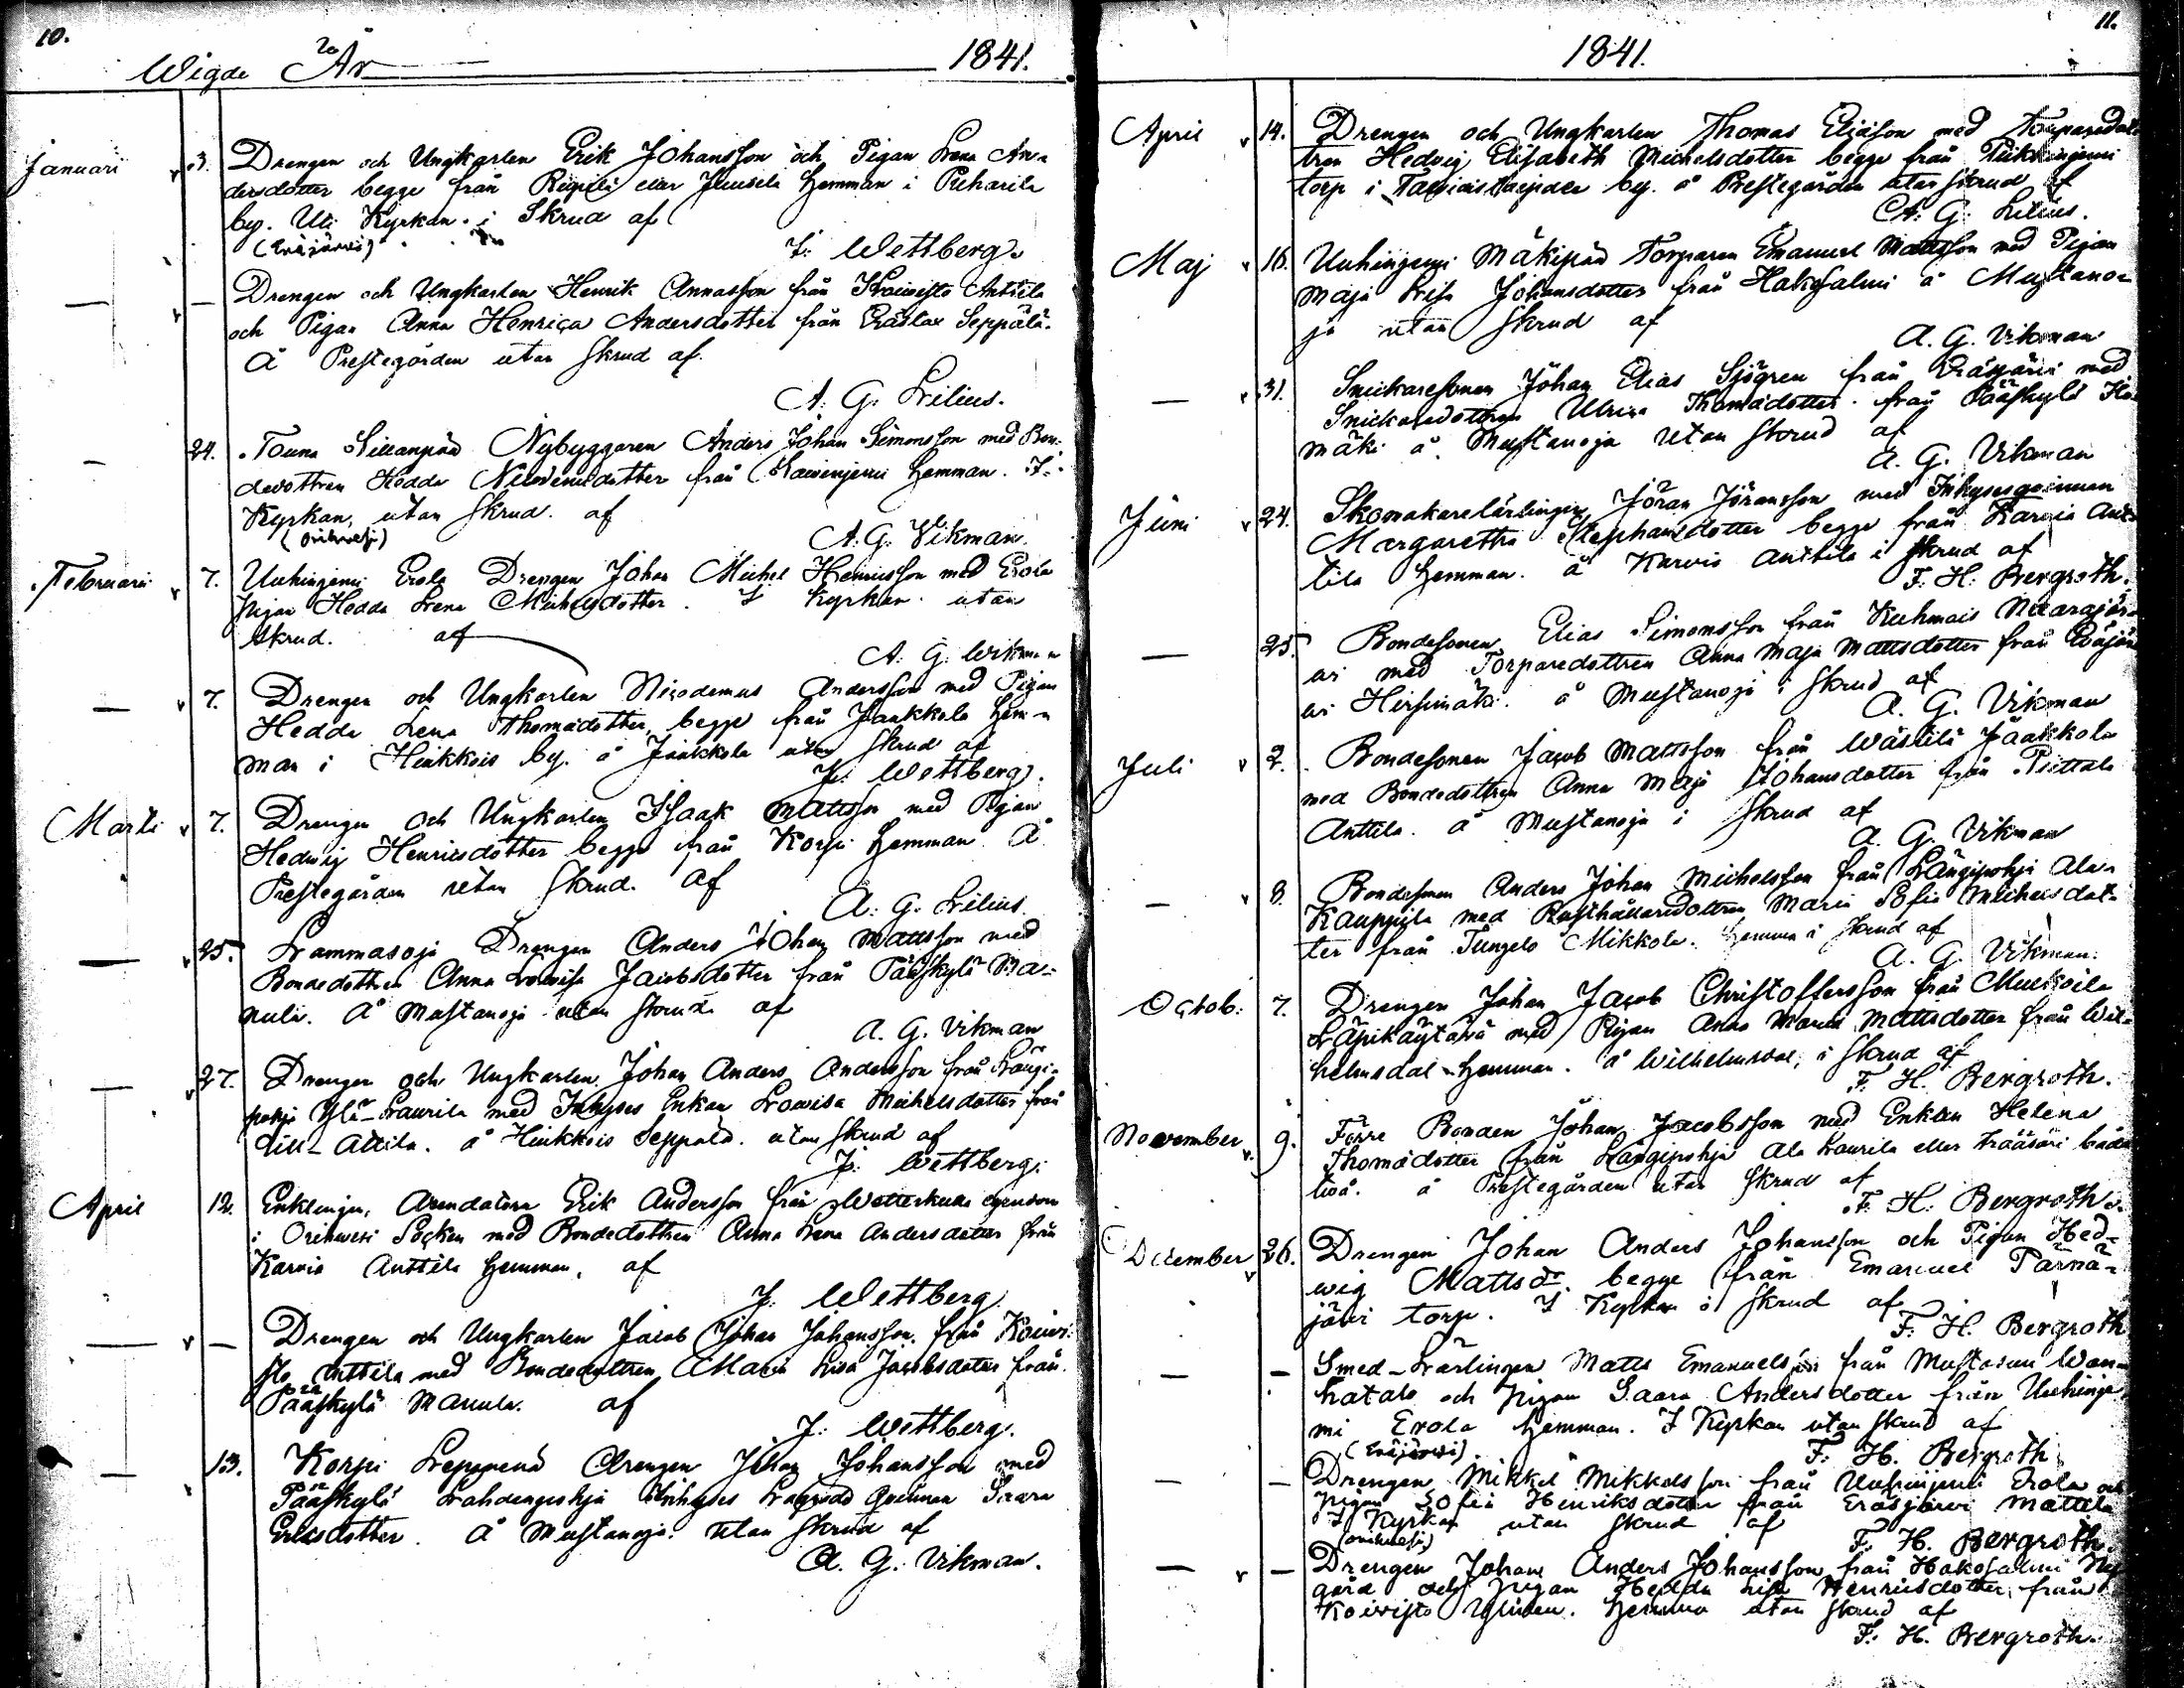 10.
Wigde År 1841.
Januari 3. Drengen och Ungkarlen Erik Johansson och Pigan Lena An-
dersdotter begge från eller Juusela hemman i Puharila
by. Uti Kyrkan i Skrud af
(Eräjärwi) J: Wettberg.
— — Drengen och Ungkarlen Henrik Annasson från Koiwisto Anttila
och Pigan Anna Henrica Andersdotter från Erästas Seppälä.
Å Prestegården utan skrud af.
A. G. Lilius.
— 24. Touna Sillanpää Nybyggaren Anders Johan Simonsson med Bon-
dedottren Hedda dotter från hemman. I
Kyrkan, utan skrud. af
(Orihvesi) A. G. Vikman.
Februari 7. Uuhinjemi Erola Drengen Johan Michel Henricsson med Erola
pigan Hedda Lena Michelsdotter. I kyrkan utan
skrud. af
A. G. Wikman
— 7. Drengen och Ungkarlen Nicodemus Andersson med Pigan
Hedda Lena Thomædotter, begge från Jaakkola hem-
man i Hinkkois by. å Jaakkola utan skrud af
J: Wettberg.
Marti 7. Drengen och Ungkarlen Isaak Mattsson med Pigan
Hedwig Henricsdotter begge från Korpi hemman Å
Prestegården utan skrud. af
A. G. Lilius.
— 25. Lammasoja Drengen Anders Johan Mattsson med
Bondedottren Anna Lowisa Jacobsdotter från Pääskylä Ma-
nula. Å Mustanoja utan skrud. af
A. G. Vikman
— 27. Drengen och Ungkarlen Johan Anders Andersson från Längi-
pohja Ylä-Laurila med Inhyses Enkan Lowisa Michelsdotter från
Attila. å Hinkkois Seppälä. utan skrud af
J: Wettberg.
April 12. Enklingen, Arendatorn Erik Andersson från egendom
i Orihwesi Socken med Bondedottren Anna Lena Andersdotter från
Karwia Anttila hemman, af
J: Wettberg.
— — Drengen och Ungkarlen Jacob Johan Johansson från Koiwi-
sto Anttila med Bondedottren Maria Lisa Jacobsdotter från
Pääskylä Manula. af
J: Wettberg.
— 13. Korpi Leppenä Drengen Johan Johansson med
Pääskylä Lahdenpohja Inhyses qvinnan Saara
Ericsdotter. Å Mustanoja. utan skrud af
A. G. Vikman.
11.
1841.
April 14. Drengen och Ungkarlen Thomas Eliasson med Torparedot-
tren Hedvig Elisabeth Michelsdotter begge från
torp i by. å Prestegården utan skrud af
A: G: Lilius.
Maj 16. Uuhinjemi Mäkipää Torparen Emanuel Mattsson med Pigan
Maja Lisa Johansdotter från Hakosalmi å Mustano-
ja utan skrud af
A. G. Vikman
— 31. Snickaresonen Johan Elias Sjögren från Eräjärvi med
Snickaredottren Ulrica Thomædotter från Pääskylä
mäki å Mustanoja utan skrud af
A. G. Vikman
Juni 24. Skomakarelärlingen Jöran Jöransson med Inhysesqvinnan
Margaretha Stephansdotter begge från Karvia Ant-
tila hemman. å Karvia Anttila i skrud af
F. H: Bergroth.
— 25. Bondesonen Elias Simonsson från Kuhmois Naarajär-
vi med Torparedottren Anna Maja Mattsdotter från Eräjär-
vi Hirsimäki. å Mustanoja i skrud af
A. G. Vikman
Juli 2. Bondesonen Jacob Mattsson från Wästilä Jaakkola
med Bondedottren Anna Maja Johansdotter från
Anttila. å Mustanoja i skrud af
A. G. Vikman
— 8. Bondesonen Anders Johan Michelsson från Längipohja Ala-
Kauppila med Rusthållaredottren Maria Sofia Michelsdot-
ter från Mikkola. hemma i skrud af
A. G. Vikman.
Octob. 7. Drengen Johan Jacob Christoffersson från
Läpikäytävä med Pigan Anna Maria Mattsdotter från Wil-
helmsdal hemman. å Wilhelmsdal, i skrud af
F. H. Bergroth.
November 9. Förre Bonden Johan Jacobsson med Enkan Helena
Thomædotter från Längipohja Ala Laurila eller båda
två. å Prestegården utan skrud af
F. H: Bergroth.
December 26. Drengen Johan Anders Johansson och Pigan Hed-
wig Mattsdr. begge från Emanuel Pärnä-
järvi torp. I Kyrkan i skrud af
F. H. Bergroth
— — Smed-Lärlingen Matts Emanuelsson från Mustasaari Wan-
hatalo och pigan Saara Andersdotter från Uuhinje-
mi Erola hemman. I Kyrkan utan skrud af
(Eräjärwi). F. H. Bergroth
— — Drengen Mikkel Mikkelsson från Uuhinjemi Erola och
pigan Sofia Henriksdotter från Eräsjärvi Mattila
I Kyrkan utan skrud af
(Orihvesi) F. H. Bergroth.
— — Drengen Johan Anders Johansson från Hakosalmi Ny-
gård och pigan Hedda Lisa Henricsdotter, från
Koivisto Ylinen. hemma utan skrud af
F: H. Bergroth.